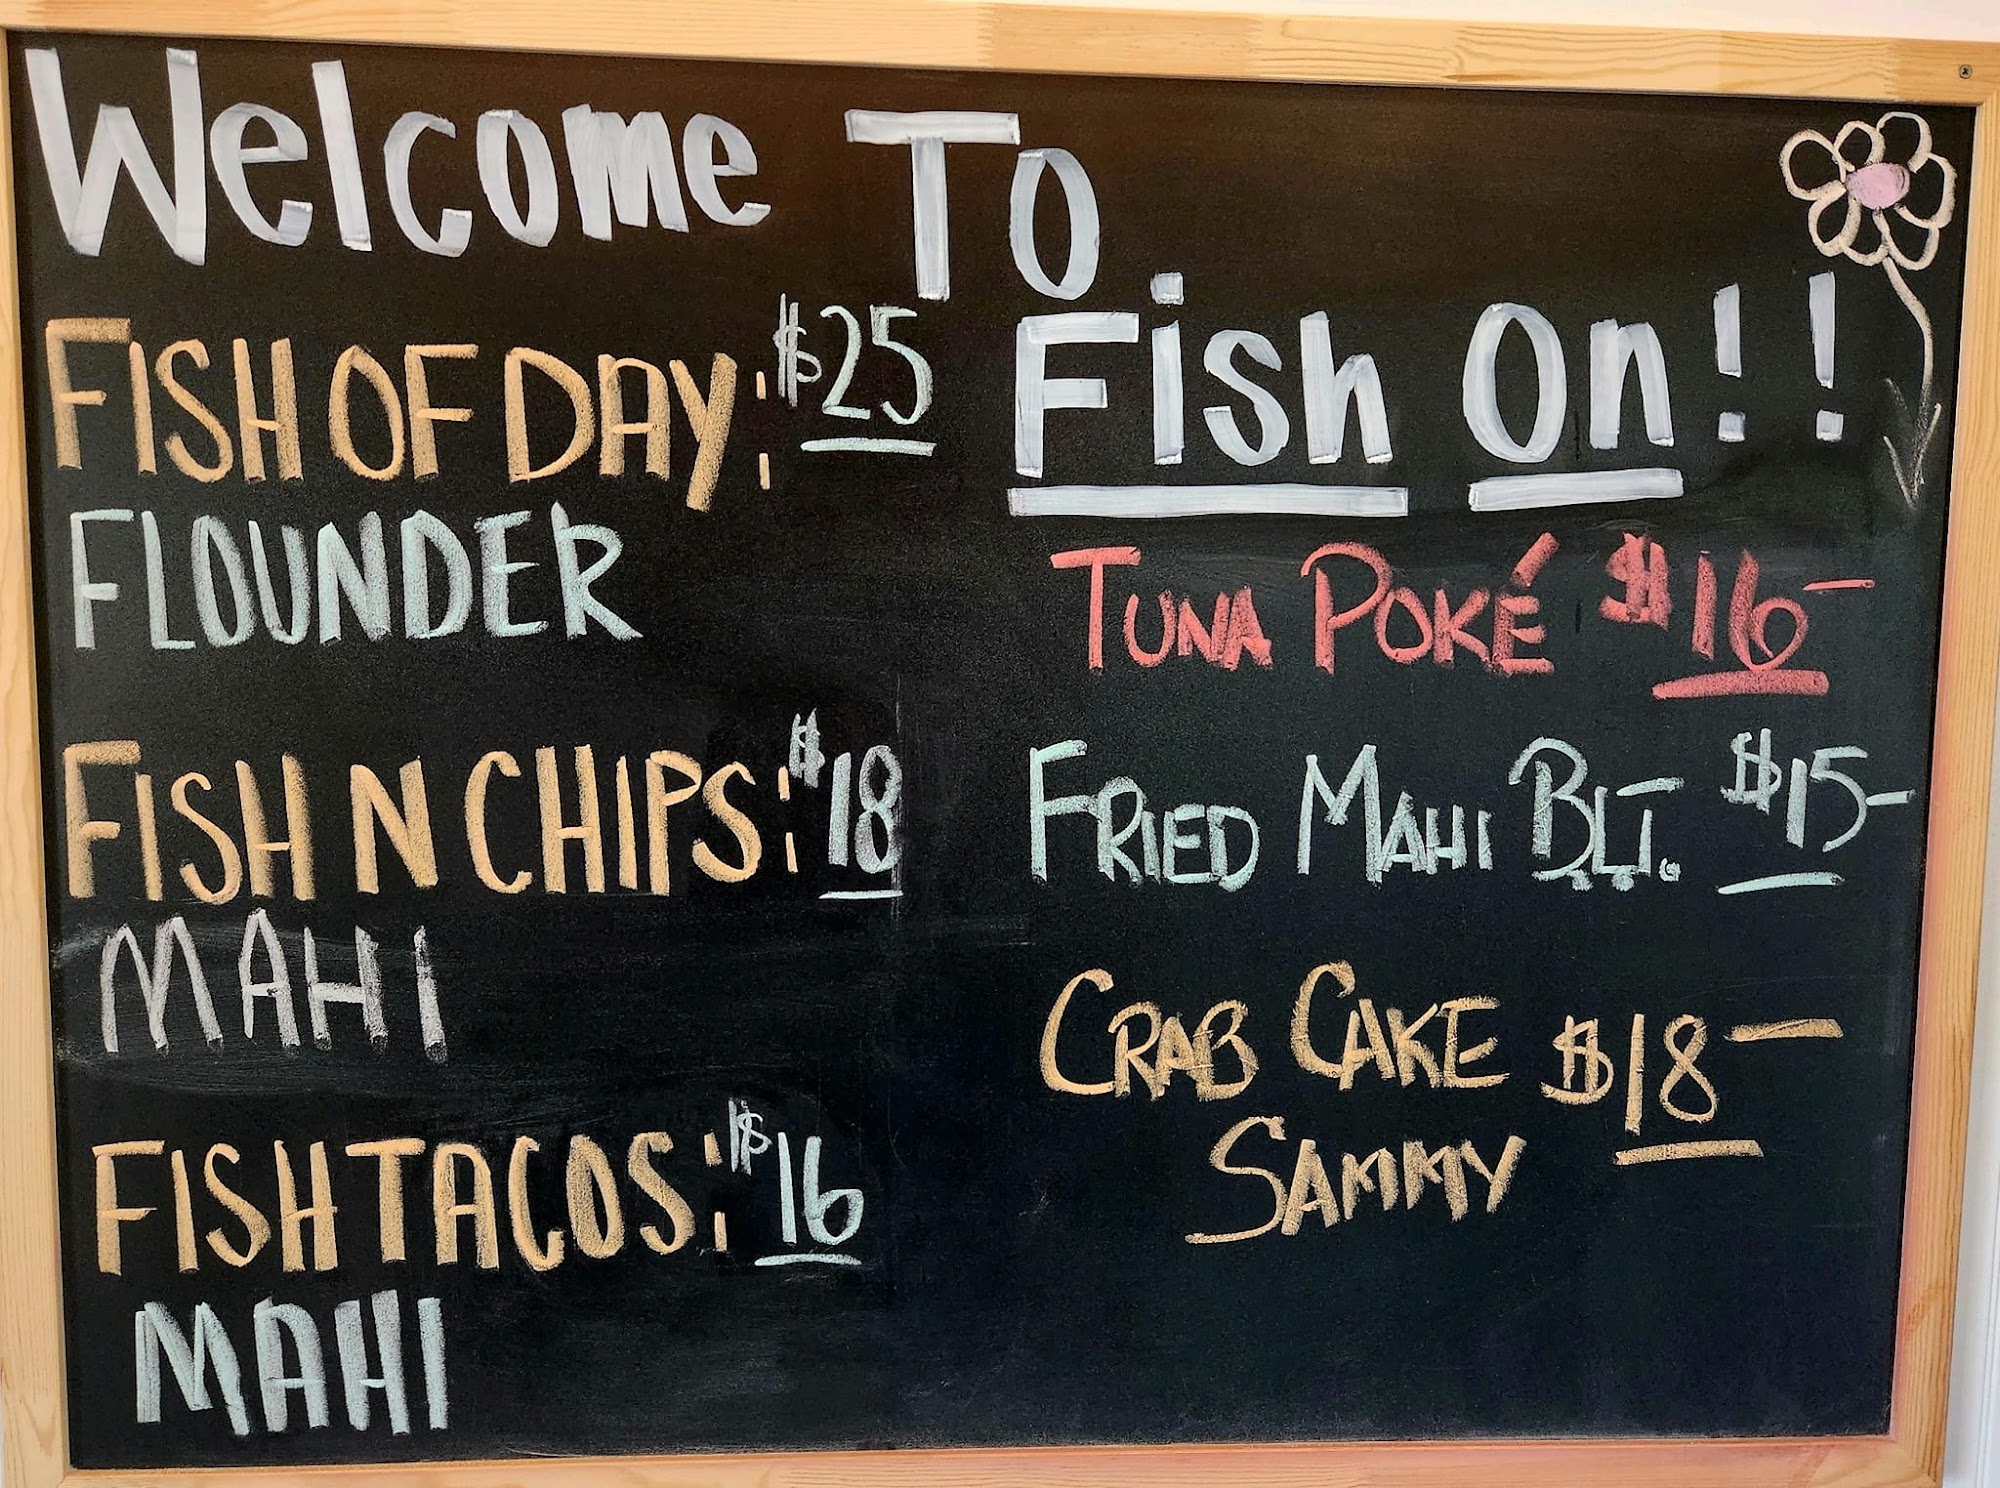 Welcome To
Fish On!!
FISH OF DAY: $25
FLOUNDER
FISH N CHIPS: $18
MAHI
FISH TACOS: $16
MAHI
TUNA POKÉ $16-
FRIED MAHI B.L.T. $15-
CRAB CAKE $18-
SAMMY